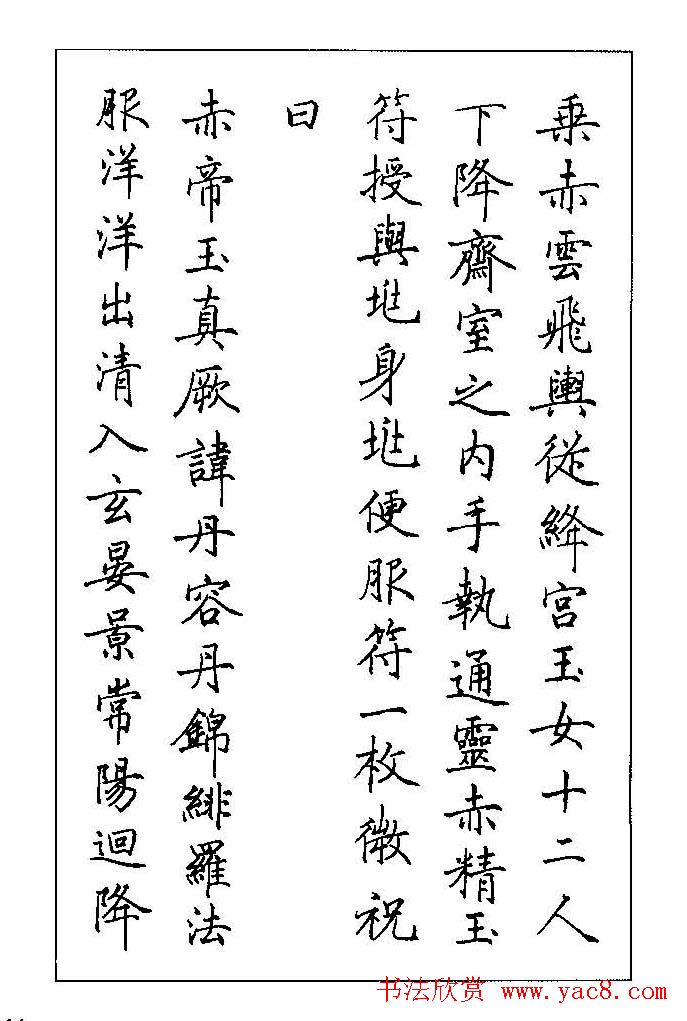 乗赤雲飛輿從絳宮玉女十二人
下降齋室之内手執通靈赤精玉
符授與某身某便服符一枚微祝
曰
赤帝玉真厥諱丹容丹錦緋羅法
服洋洋出清入玄晏景常陽迴降
书法欣赏 www.yac8.com